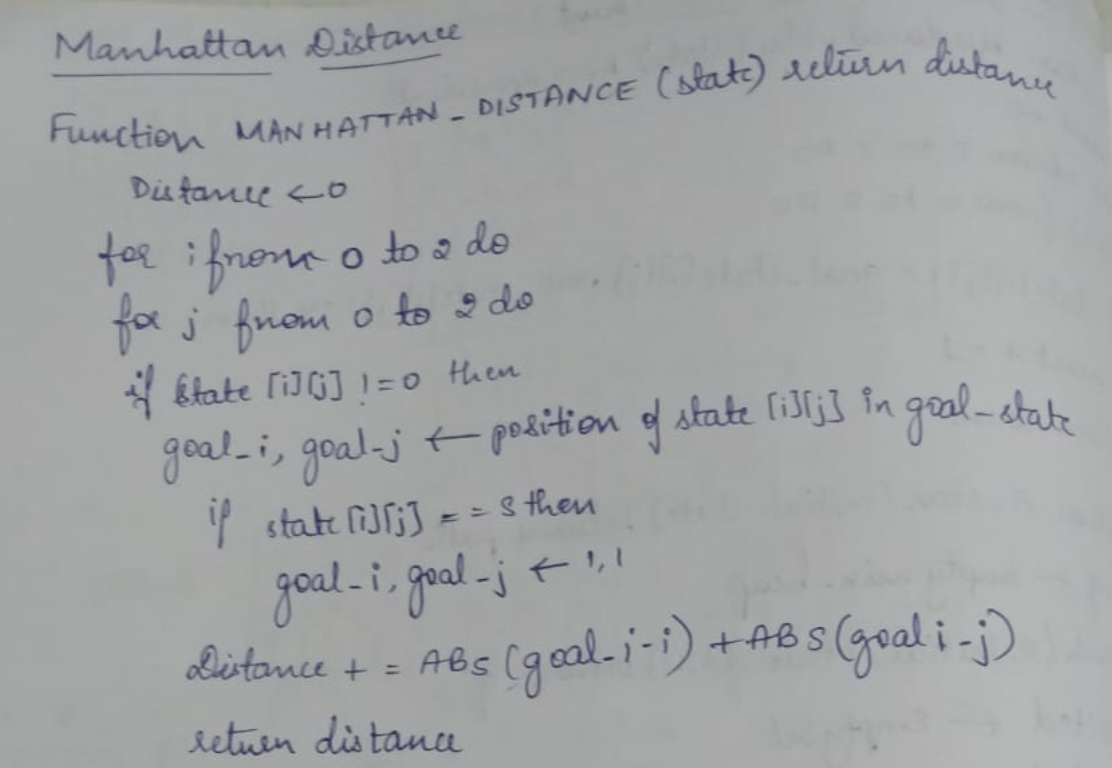 Manhattan Distance
Function MANHATTAN_DISTANCE (state) return distance
Distance ← 0
for i from 0 to 2 do
for j from 0 to 2 do
if state [i][j] != 0 then
goal_i, goal-j ← position of state [i][j] in goal-state
if state [i][j] == s then
goal_i, goal-j ← 1,1
Distance + = ABS (goal-i-i) + ABS (goal i-j)
return distance